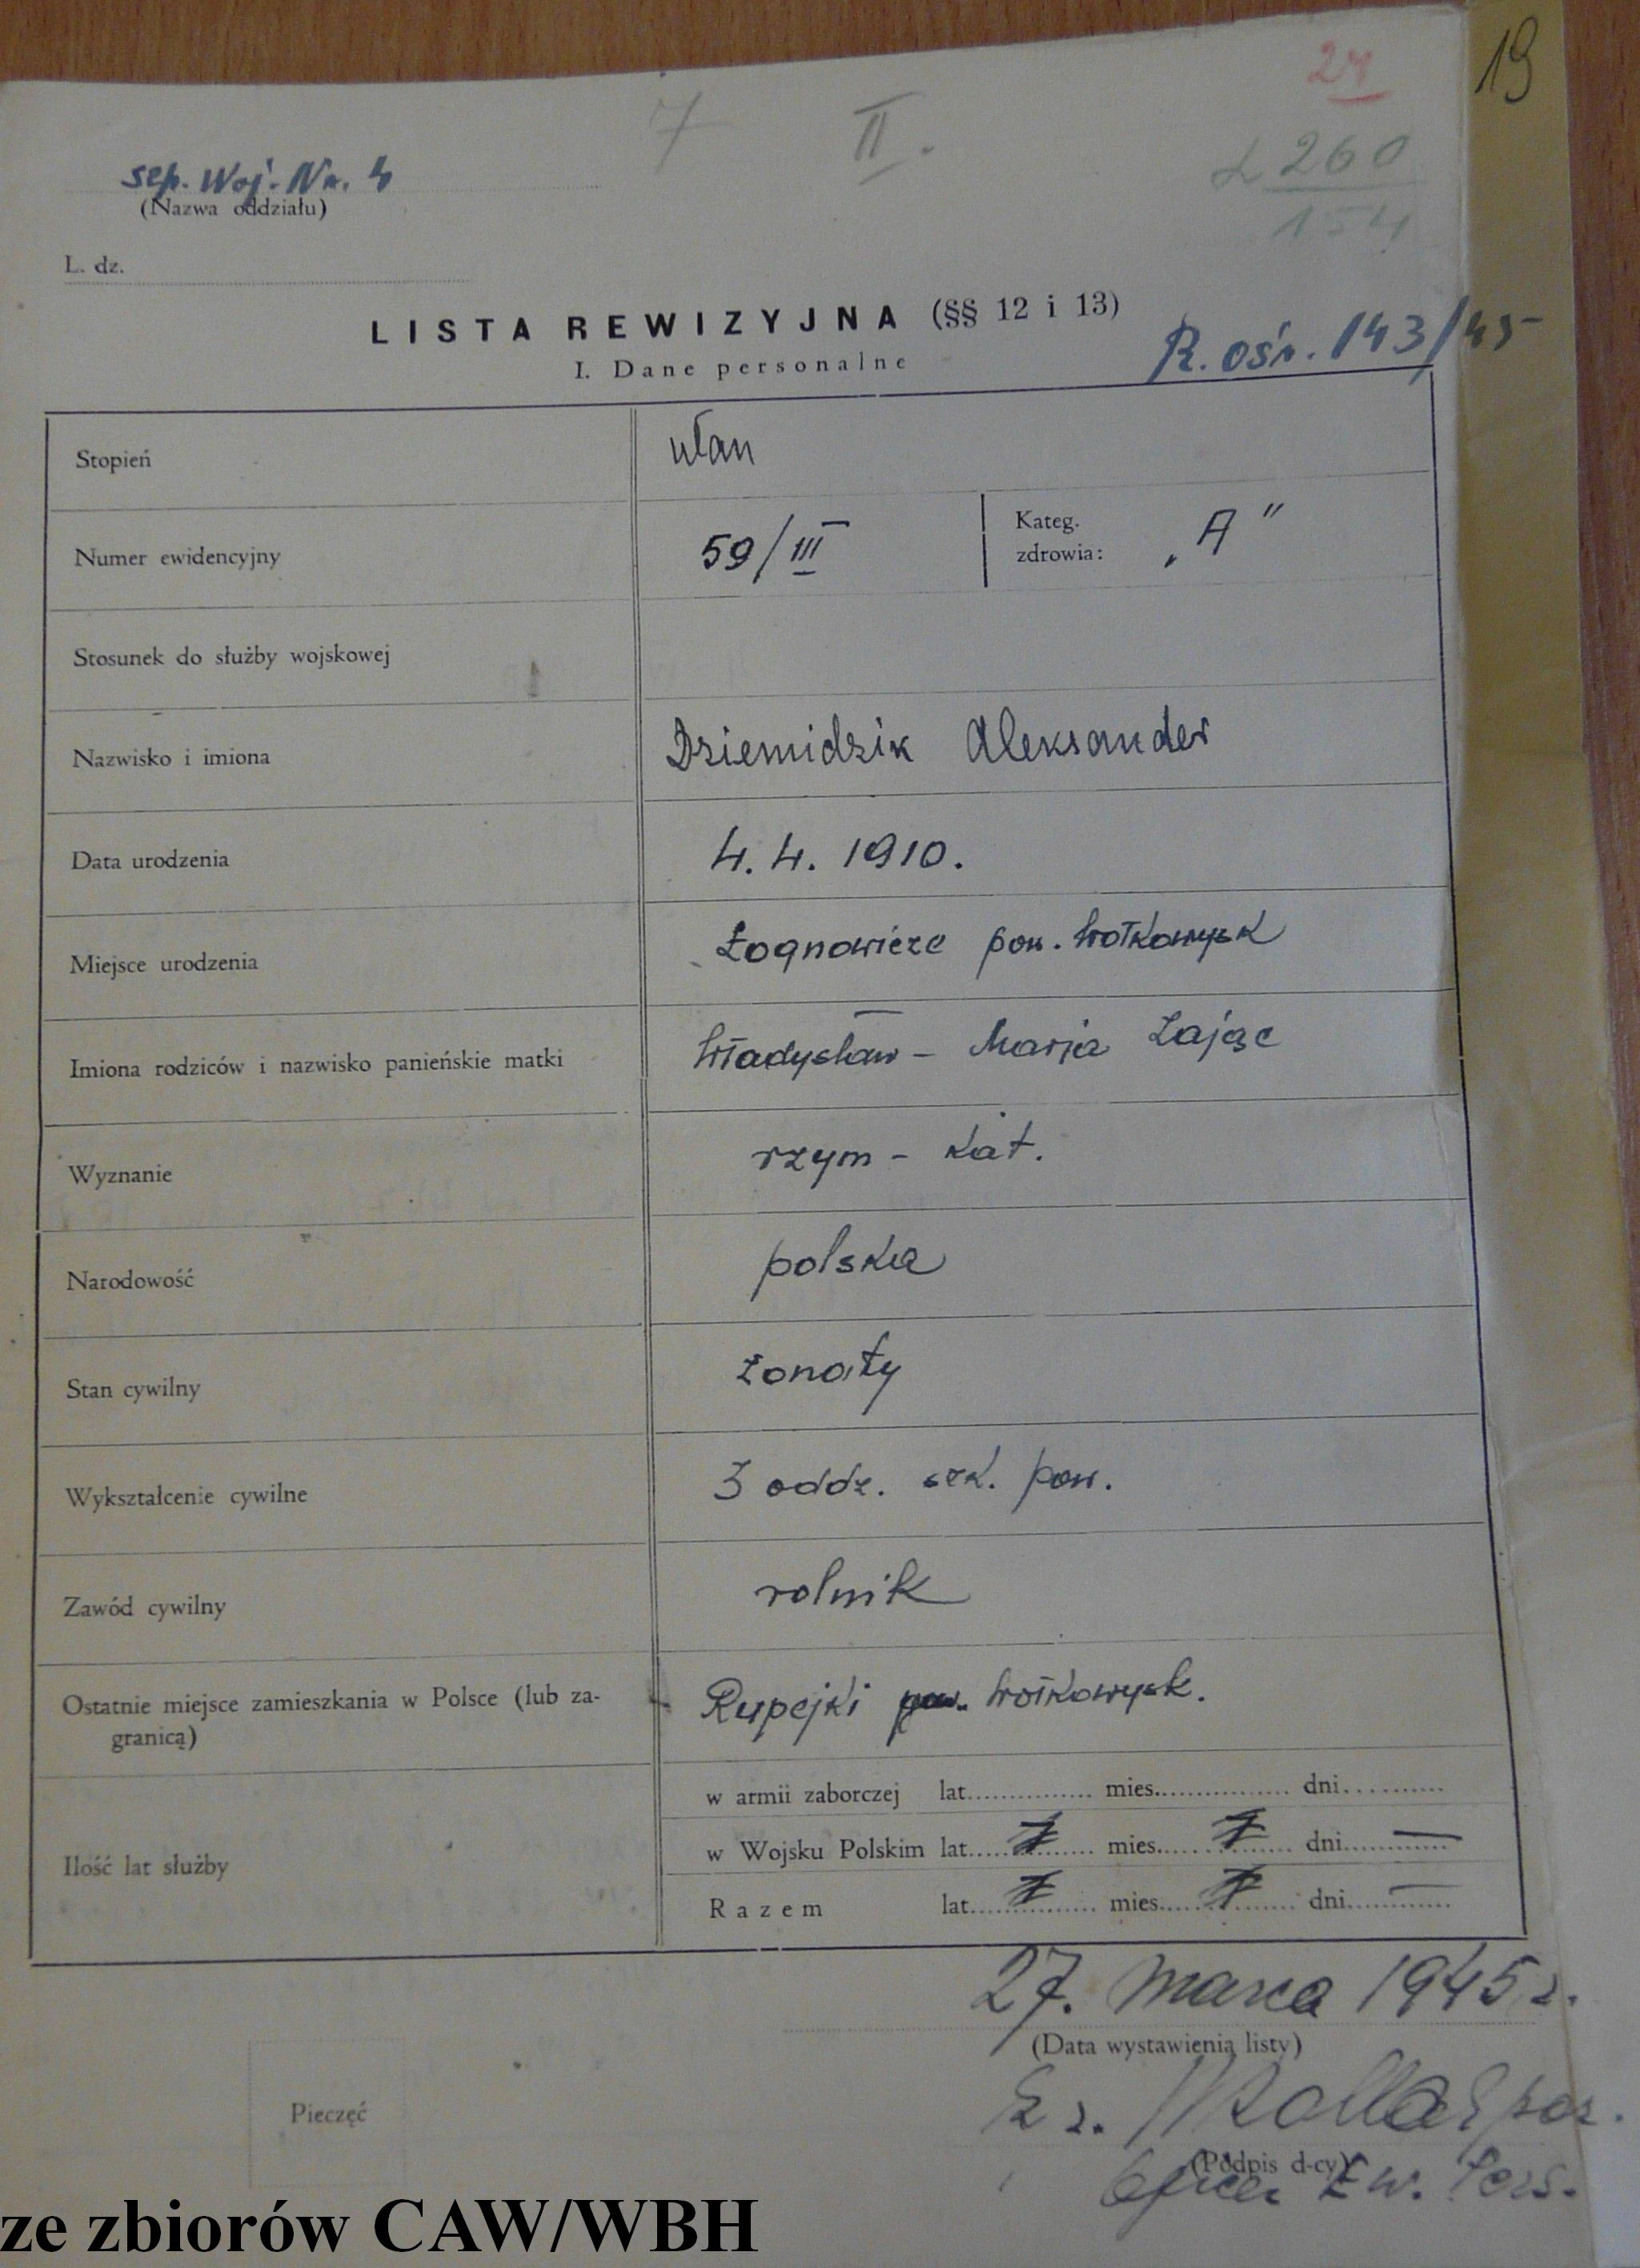 19
24
7 II.
L 260
154
sep. Woj. Nr. 4
(Nazwa oddziału)
L. dz.
LISTA REWIZYJNA (§§ 12 i 13)
R. ośr. 143/45
I. Dane personalne
Stopień ułan
Numer ewidencyjny 59/III Kateg. zdrowia: „A"
Stosunek do służby wojskowej
Nazwisko i imiona Dziemidzik Aleksander
Data urodzenia 4. 4. 1910.
Miejsce urodzenia Łognowicze pow. Wołkowysk
Imiona rodziców i nazwisko panieńskie matki Władysław - Marja Zając
Wyznanie rzym - kat.
Narodowość polska
Stan cywilny żonaty
Wykształcenie cywilne 3 oddz. szk. pow.
Zawód cywilny rolnik
Ostatnie miejsce zamieszkania w Polsce (lub za- Rupejki pow. Wołkowysk.
granicą)
w armii zaborczej lat mies. dni
Ilość lat służby
w Wojsku Polskim lat mies. dni —
Razem lat mies. dni —
27. marca 1945 r.
(Data wystawienia listy)
Pieczęć
(Podpis d-cy)
Oficer Ew. Pers.
ze zbiorów CAW/WBH